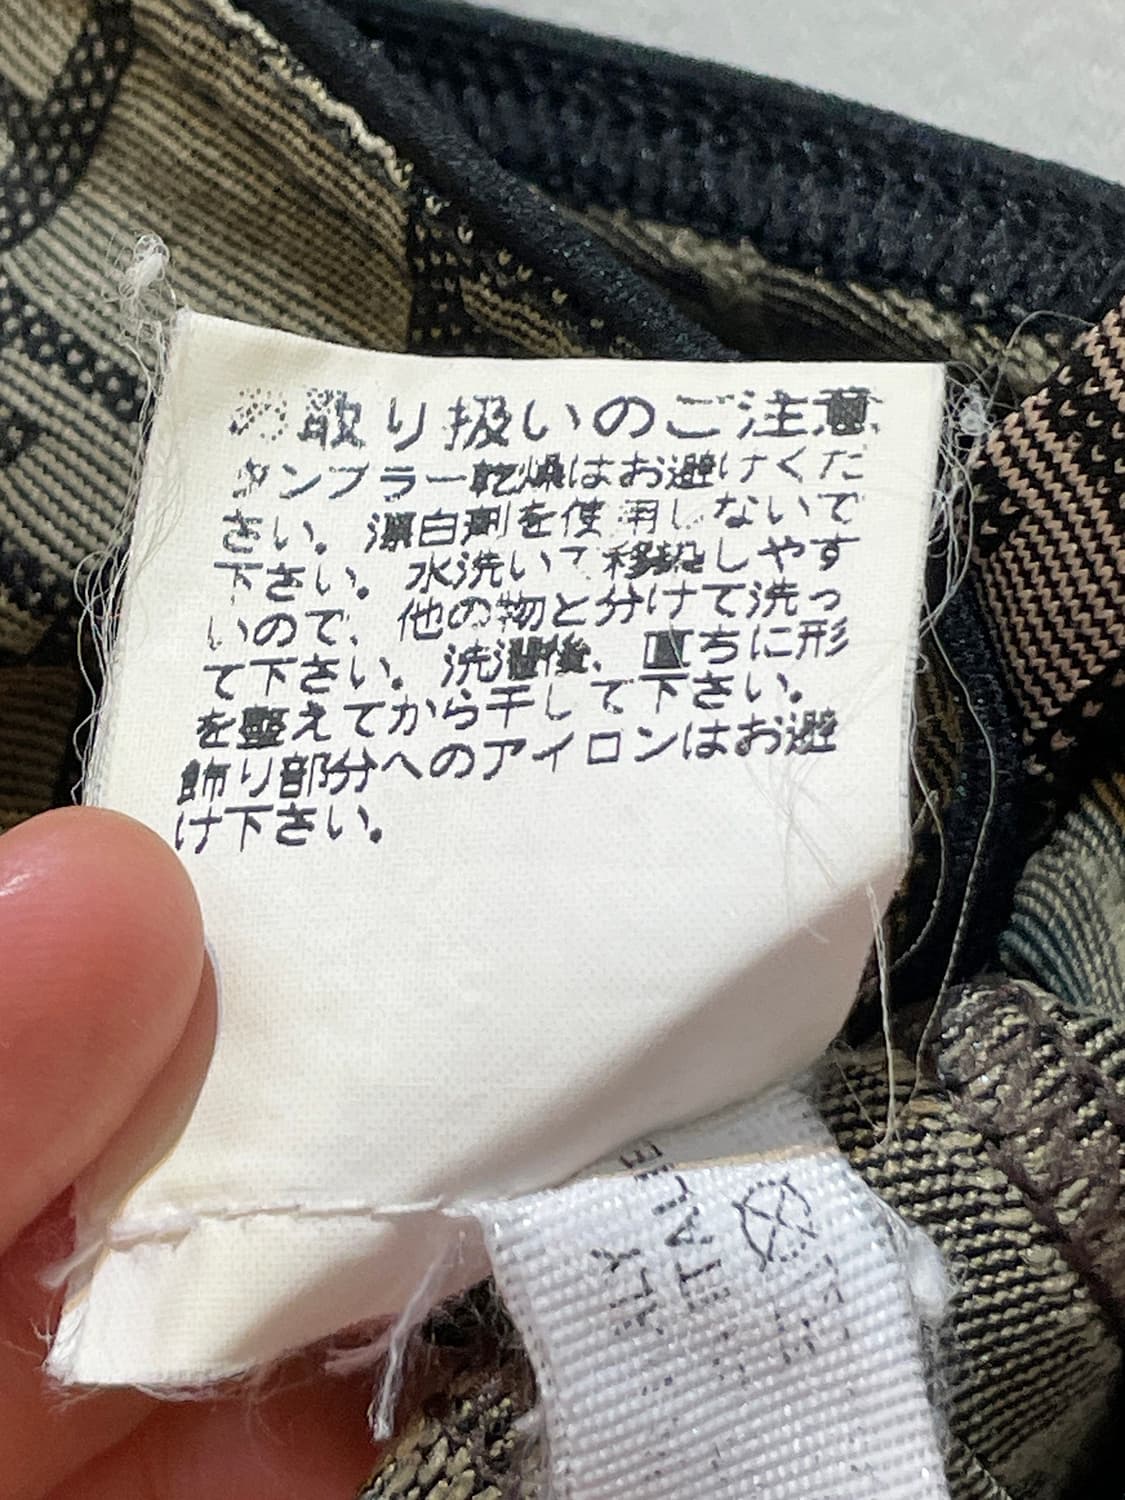 の取り扱いのご注意
タンブラー乾燥はお避けくだ
さい。漂白剤を使用しないで
下さい。水洗いで移染しやす
いので、他の物と分けて洗っ
て下さい。洗濯後、直ちに形
を整えてから干して下さい。
飾り部分へのアイロンはお避
け下さい。
ITALY